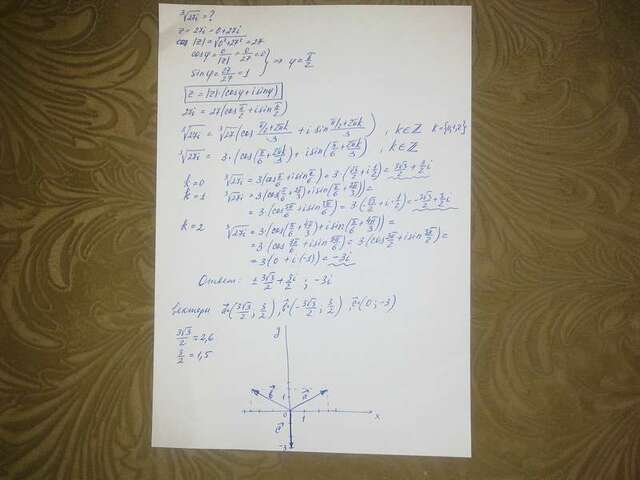 ∛27i = ?
z = 27i = 0+27i
|z| = √(0²+27²) = 27
cos φ = 0/|z| = 0/27 = 0
sin φ = 27/27 = 1 } ⇒ φ = π/2
z = |z|·(cos φ + i sin φ)
27i = 27(cos π/2 + i sin π/2)
∛27i = ∛27 (cos (π/2+2πk)/3 + i sin (π/2+2πk)/3), k∈Z
∛27i = 3·(cos(π/6+2πk/3) + i sin(π/6+2πk/3)), k∈Z
k=0 ∛27i = 3(cos π/6 + i sin π/6) = 3·(√3/2 + i·1/2) = 3√3/2 + 3/2 i
k=1 ∛27i = 3·(cos(π/6+2π/3) + i sin(π/6+2π/3)) =
= 3·(cos 5π/6 + i sin 5π/6) = 3·(-√3/2 + i·1/2) = -3√3/2 + 3/2 i
k=2 ∛27i = 3·(cos(π/6+4π/3) + i sin(π/6+4π/3)) =
= 3·(cos 9π/6 + i sin 9π/6) = 3·(cos 3π/2 + i sin 3π/2) =
= 3(0 + i·(-1)) = -3i
Ответ: ± 3√3/2 + 3/2 i ; -3i
Векторы a(3√3/2; 3/2), b(-3√3/2; 3/2), c(0; -3)
3√3/2 = 2,6
3/2 = 1,5
y
b 1 a
0 1 x
c
-3